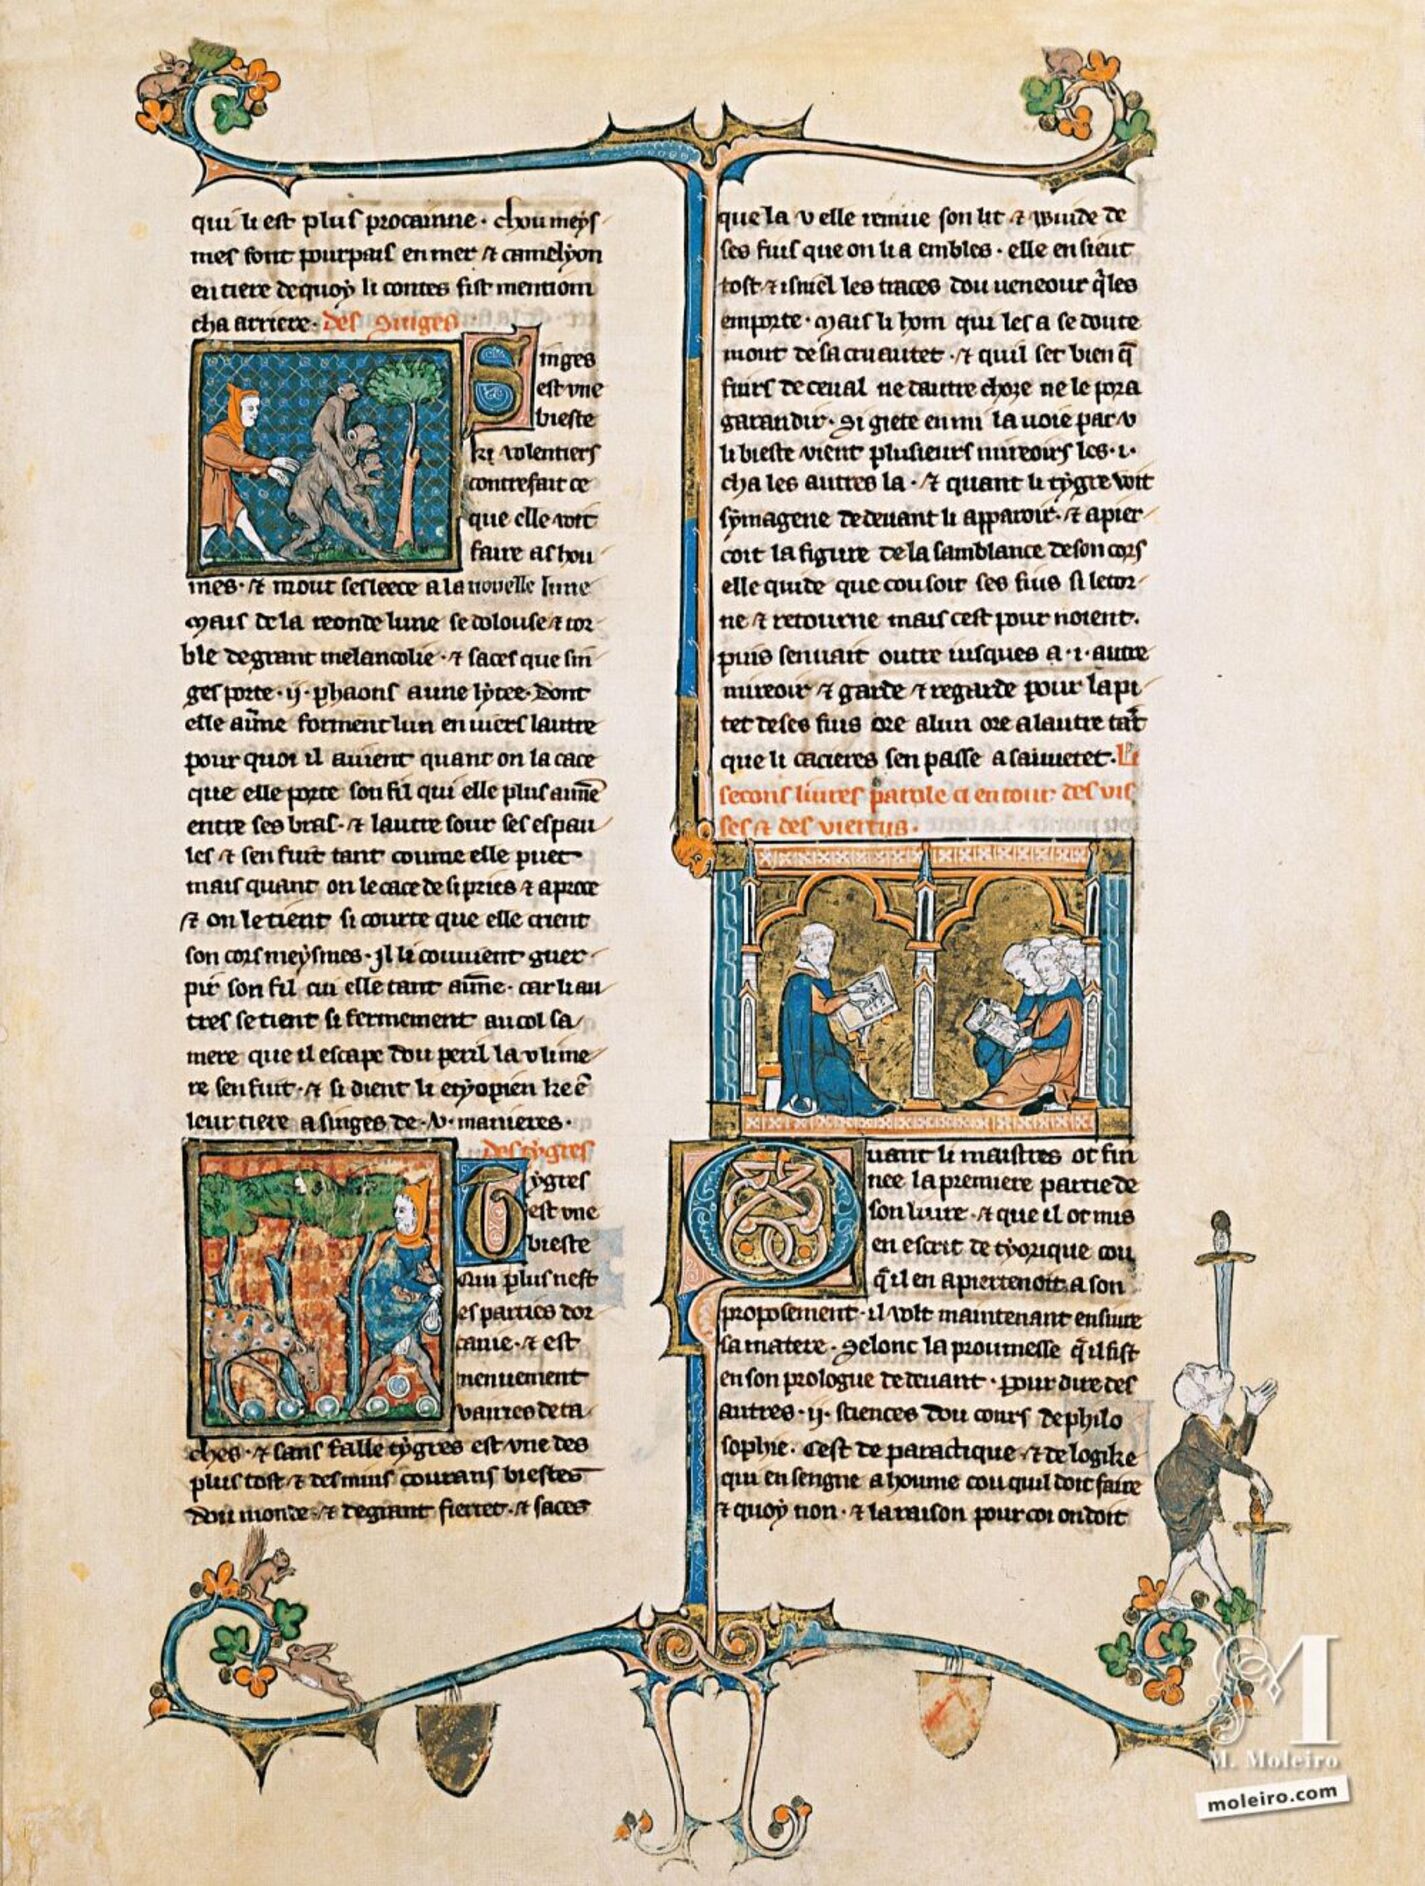 qui li est plus procainne · chou meys
mes font pourpais en mer ⁊ camelyon
en tiere de quoy li contes fist mention
cha arriere · des singes
Singes
est vne
bieste
ki volentiers
contrefait ce
que elle voit
faire as hou
mes · ⁊ mout sesleece a la nouelle lune
Mais de la reonde lune se dolouse ⁊ tor
ble de grant melancolie · ⁊ saces que sin
ges porte · ij · phaons a une lytee · Dont
elle aīme forment lun enuiers lautre
pour quoi il auient quant on la cace
que elle porte son fil qui elle plus aīme
entre ses bras · ⁊ lautre sour ses espau
les ⁊ sen fuit tant coume elle puet
mais quant on le cace de si pries ⁊ aproce
⁊ on le tient si courte que elle crient
son cors meysmes · Jl li couuient guer
pir son fil cui elle tant aīme · car li au
tres se tient si fermement au col sa
mere que il escape dou peril la v li me
re sen fuit · ⁊ si dient li etyopien ke ē
leur tiere a singes de · v · manieres ·
des tygres
Tygres
est vne
bieste
qui plus nest
es parties dor
canie · ⁊ est
menuement
vairies de ta
ches · ⁊ sans falle tygres est vne des
plus tost ⁊ des mius courans biestes
dou monde · ⁊ de grant fierret · ⁊ saces
que la v elle remue son lit ⁊ wuide de
ses fius que on li a embles · elle en sieut
tost ⁊ isniel les traces dou ueneour q̄ les
emporte · Mais li hom qui les a se doute
mout de sa cruautet · ⁊ quil set bien q̄
fuirs de ceual ne dautre choze ne le pora
garandir · Si giete en mi la uoie par v
li bieste vient plusieurs mireoirs les · i ·
cha les autres la · ⁊ quant li tygre voit
symagene de deuant li apparoir · ⁊ apier
coit la figure de la samblance de son cors
elle quide que cou soit ses fius si le tor
ne ⁊ retourne mais cest pour noient ·
puis sen uait outre iusques a · i · autre
mireoir ⁊ garde ⁊ regarde pour la pi
tet de ses fius ore a lun ore a lautre tāt
que li cacieres sen passe a sauuetet · Li
secons liures parole ci entour des vis
ses ⁊ des viertus ·
Quant li maistres ot fin
nee la premiere partie de
son liure · ⁊ que il ot mis
en escrit de tyorique cou
q̄ il en apiertenoit a son
proposement · il volt maintenant ensiure
sa matere · Selonc la proumesse q̄ il fist
en son prologue de deuant · pour dire des
autres · ij · sciences dou cours de philo
sophie · Cest de paractique · ⁊ de logike
qui ensengne a houme cou quil doit faire
⁊ quoy non · ⁊ la raison pour coi on doit
M
M. Moleiro
moleiro.com